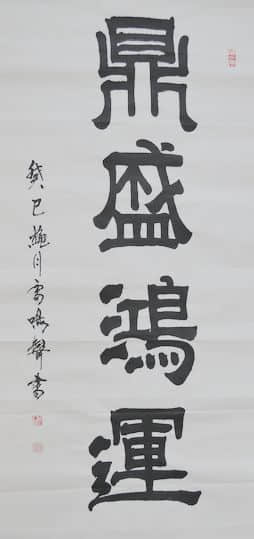 鼎盛鴻運
癸巳蒲月雷鳴聲書